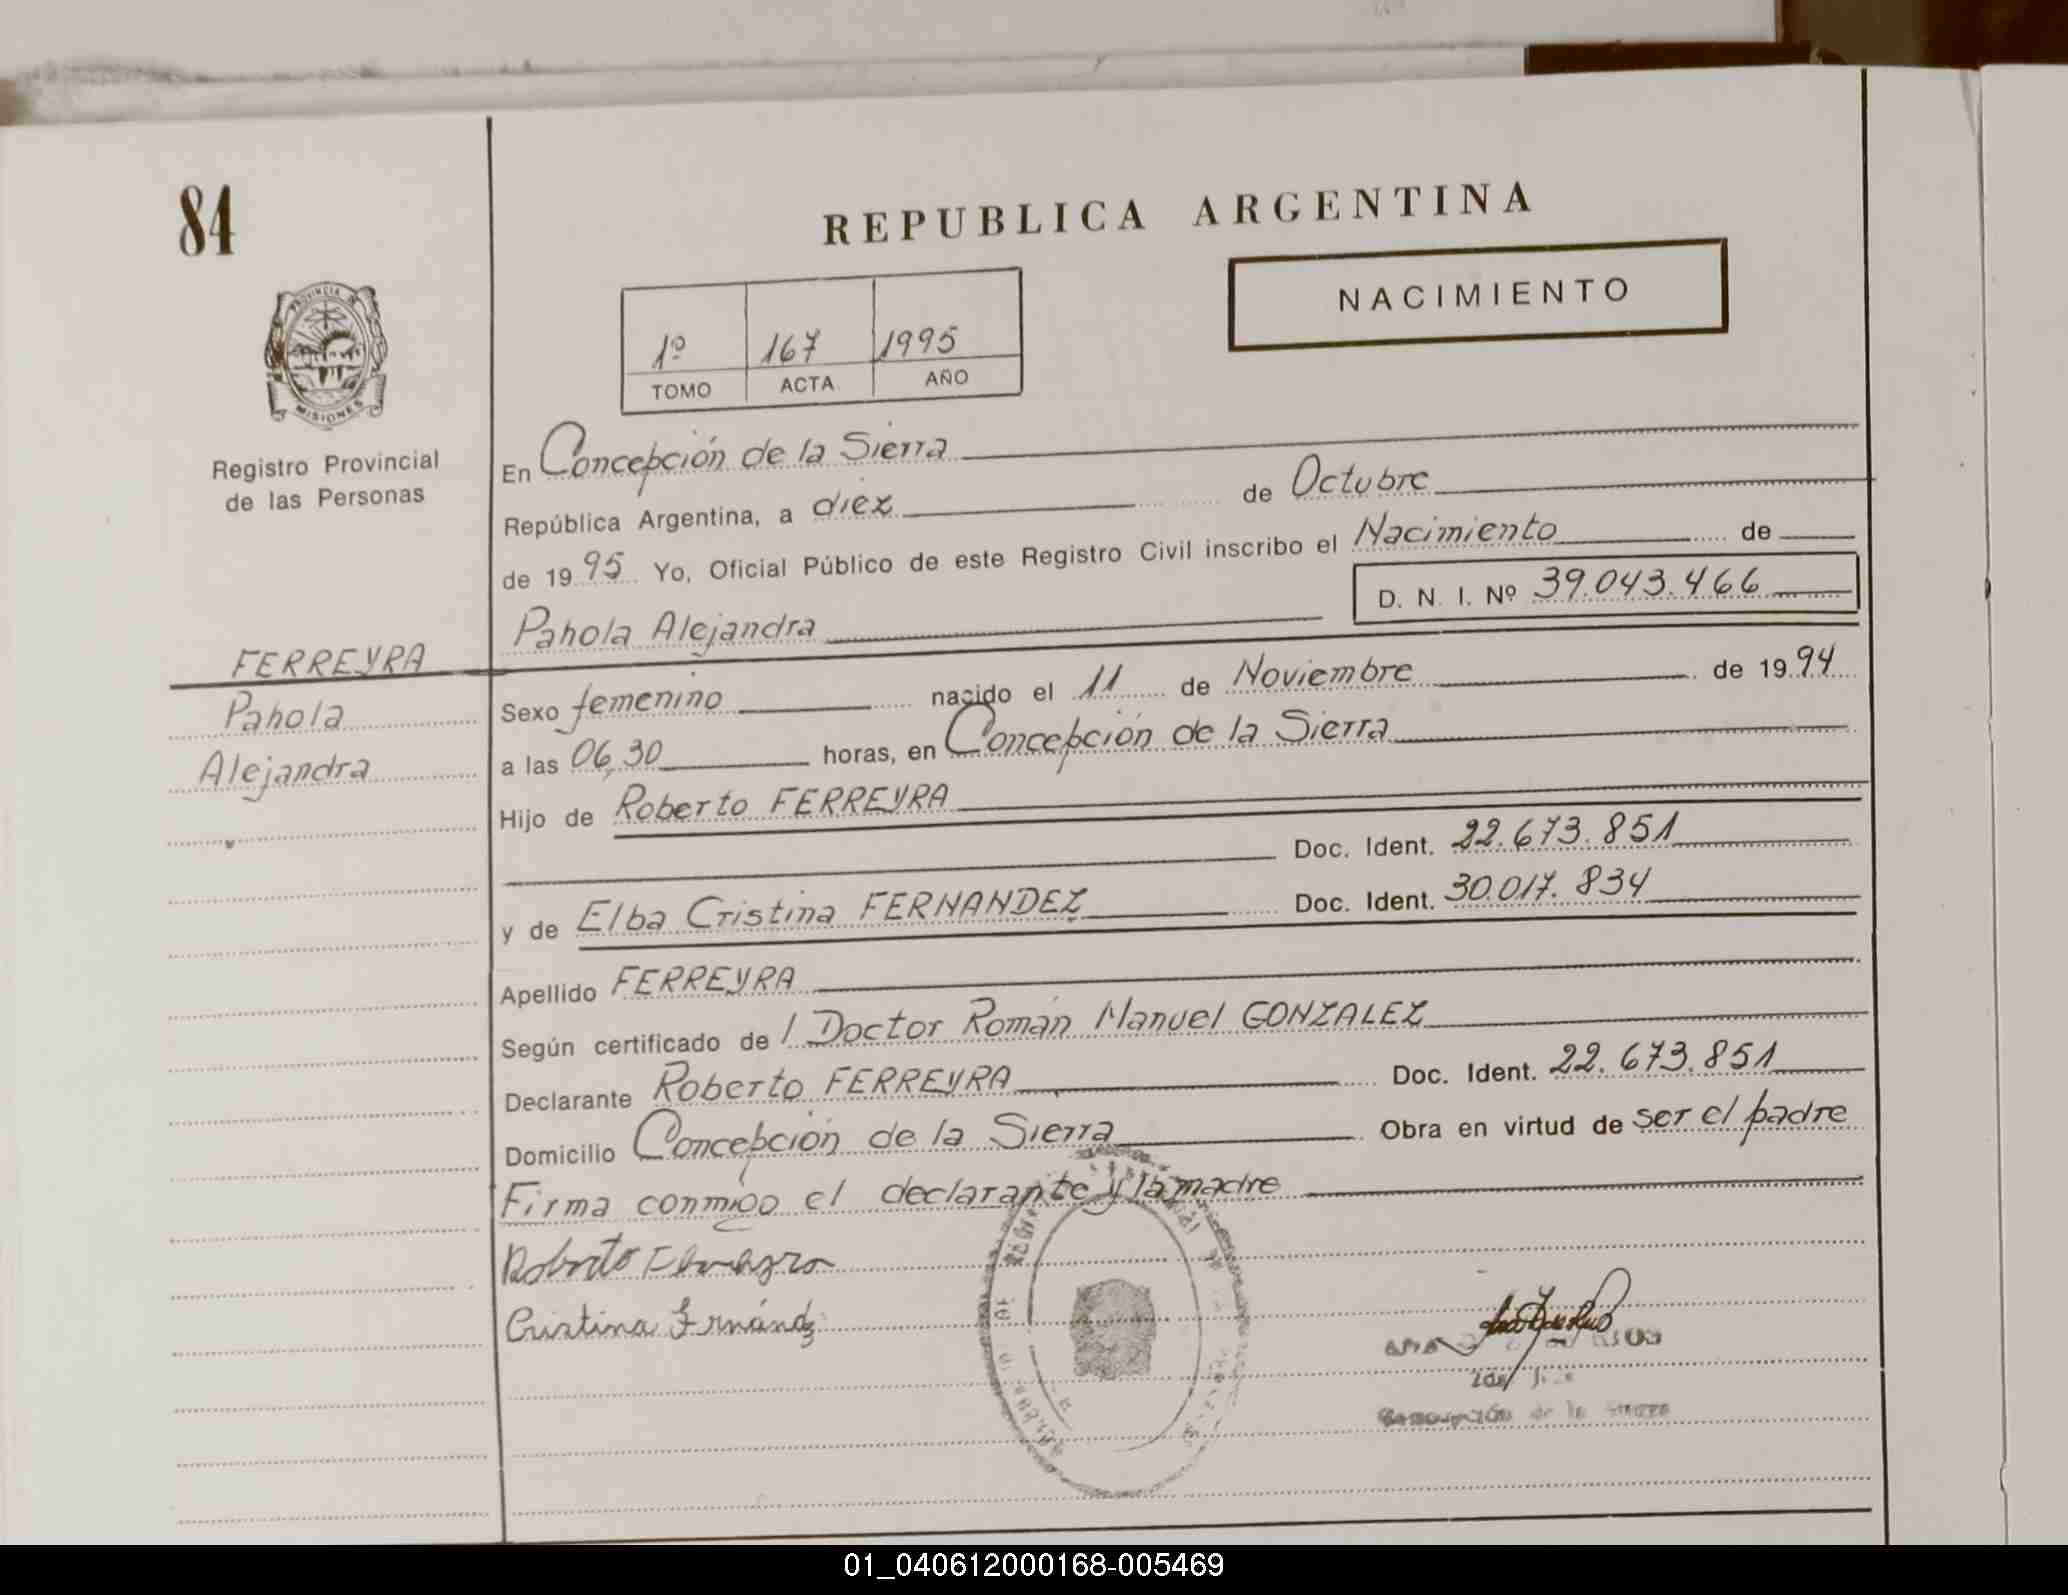 84
REPUBLICA ARGENTINA
NACIMIENTO
PROVINCIA DE
MISIONES
Registro Provincial
de las Personas
1º 167 1995
TOMO ACTA AÑO
En Concepción de la Sierra
República Argentina, a diez de Octubre
de 1995 Yo, Oficial Público de este Registro Civil inscribo el Nacimiento de
D. N. I. Nº 39.043.466
Pahola Alejandra
FERREYRA
Pahola
Alejandra
Sexo femenino nacido el 11 de Noviembre de 1994
a las 06,30 horas, en Concepción de la Sierra
Hijo de Roberto FERREYRA
Doc. Ident. 22.673.851
y de Elba Cristina FERNANDEZ Doc. Ident. 30.017.834
Apellido FERREYRA
Según certificado de l Doctor Román Manuel GONZALEZ
Declarante Roberto FERREYRA Doc. Ident. 22.673.851
Domicilio Concepción de la Sierra Obra en virtud de ser el padre
Firma conmigo el declarante y la madre
Roberto
Cristina
de la
01_040612000168-005469